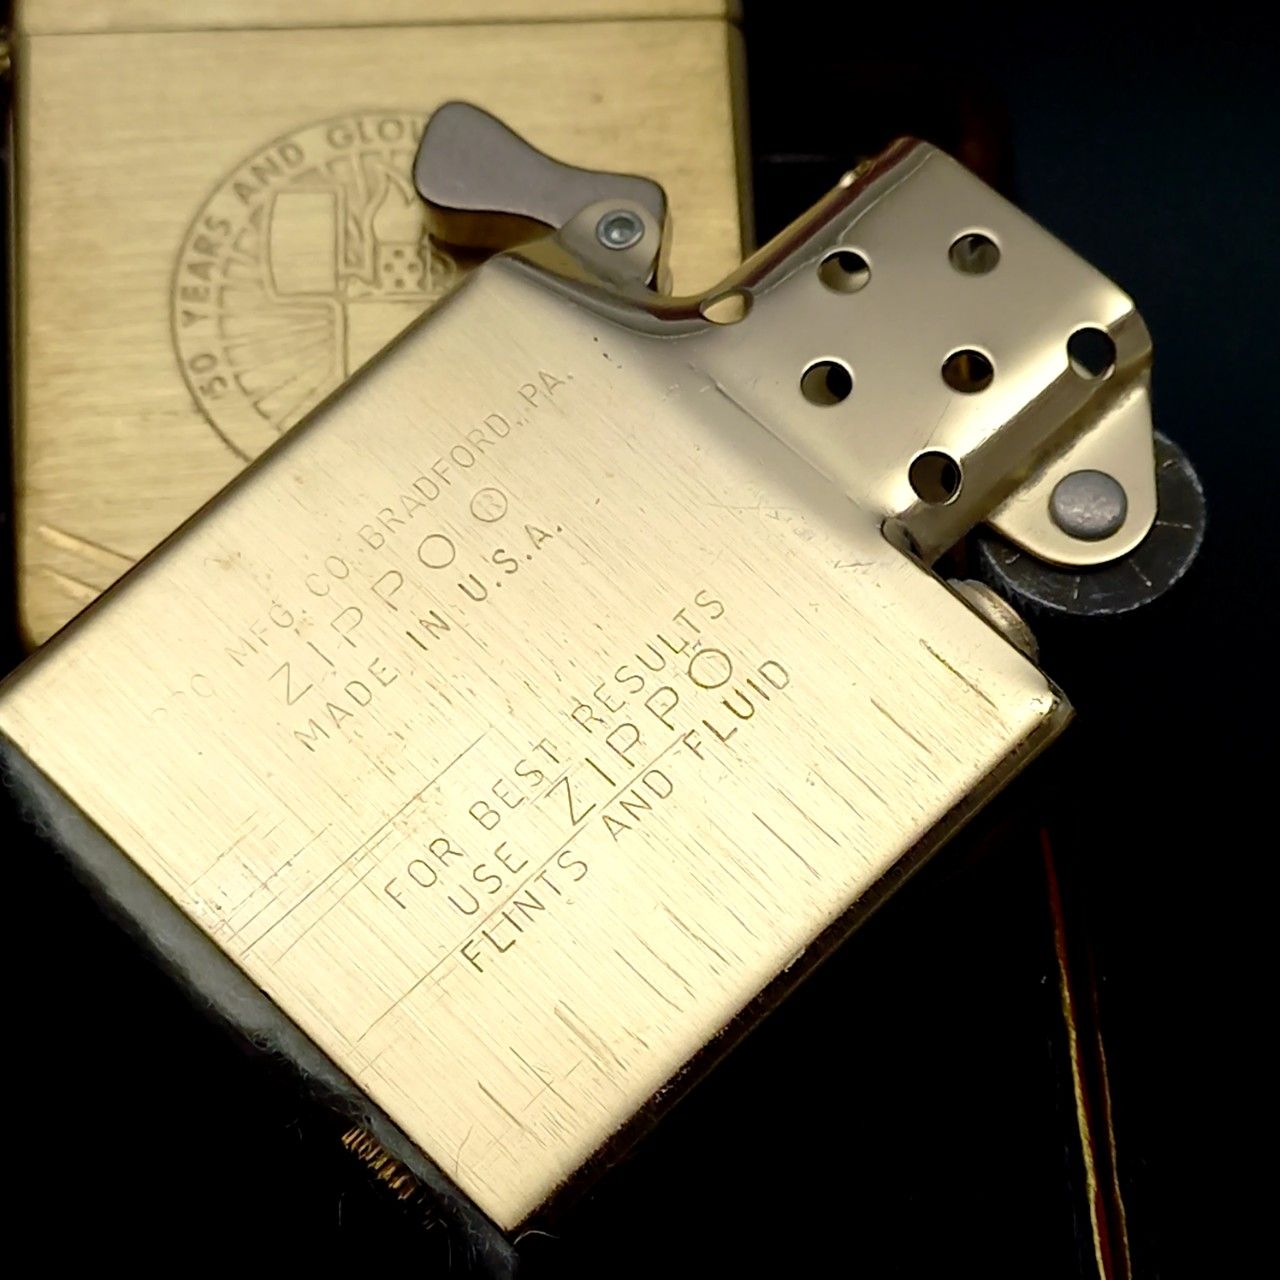 50 YEARS AND
MFG. CO. BRADFORD, PA.
ZIPPO ®
MADE IN U.S.A.
FOR BEST RESULTS
USE ZIPPO
FLINTS AND FLUID